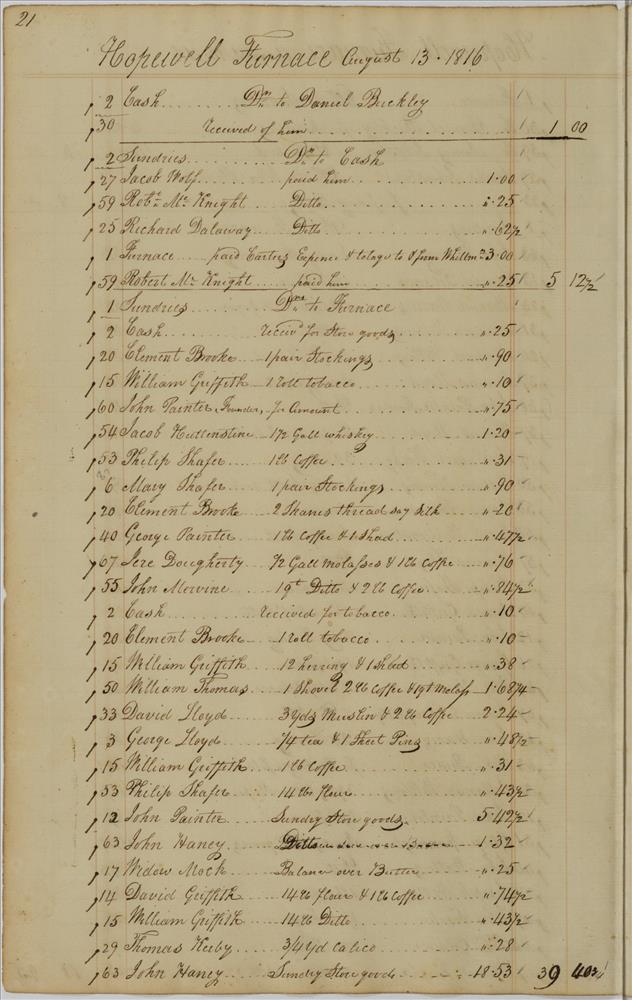 21
Hopewell Furnace August 13. 1816
2 Cash Dr to Daniel Buckley
30 received of him 1 00
2 Sundries Drs to Cash
27 Jacob Wolf paid him 1.00
59 Robt McKnight Ditto ".25
25 Richard Dalaway Ditto ".62½
1 Furnace paid Carters Expence & tolage to & from 3.00
59 Robert McKnight paid him ".25 5 12½
1 Sundries Drs to Furnace
2 Cash receivd for Store goods ".25
20 Clement Brooke 1 pair Stockings ".90
15 William Griffith 1 roll tobacco ".10
60 John Painter, Founder, for Amount ".75
54 Jacob Huttenstine 1½ Gall whiskey 1.20
53 Philip Shafer 1 lb Coffee ".31
6 Mary Shafer 1 pair Stockings ".90
20 Clement Brooke 2 Skanes thread say silk ".20
40 George Painter 1 lb Coffee & 1 Shad ".47½
67 Jere Dougherty ½ Gall Molasses & 1 lb Coffee ".76
55 John Mervine 1 qt Ditto & 2 lb Coffee ".84½
2 Cash received for tobacco ".10
20 Clement Brooke 1 roll tobacco ".10
15 William Griffith 12 herring & 1 Shad ".38
50 William Thomas 1 Shovel 2 lb Coffee & 1 qt Molass 1.68¼
33 David Lloyd 3 yds Muslin & 2 lb Coffee 2.24
3 George Lloyd ¼ tea & 1 Sheet Pins ".48½
15 William Griffith 1 lb Coffee ".31
53 Philip Shafer 14 lbs flour ".43½
12 John Painter Sundry Store goods 5.42½
63 John Haney Ditto 1.32
17 Widow Mock Balance over Butter ".25
14 David Griffith 14 lb flour & 1 lb Coffee ".74½
15 William Griffith 14 lb Ditto ".43½
29 Thomas Kirby 3/4 yd Calico ".28
63 John Haney Sundry Store goods 18.53 39 40½